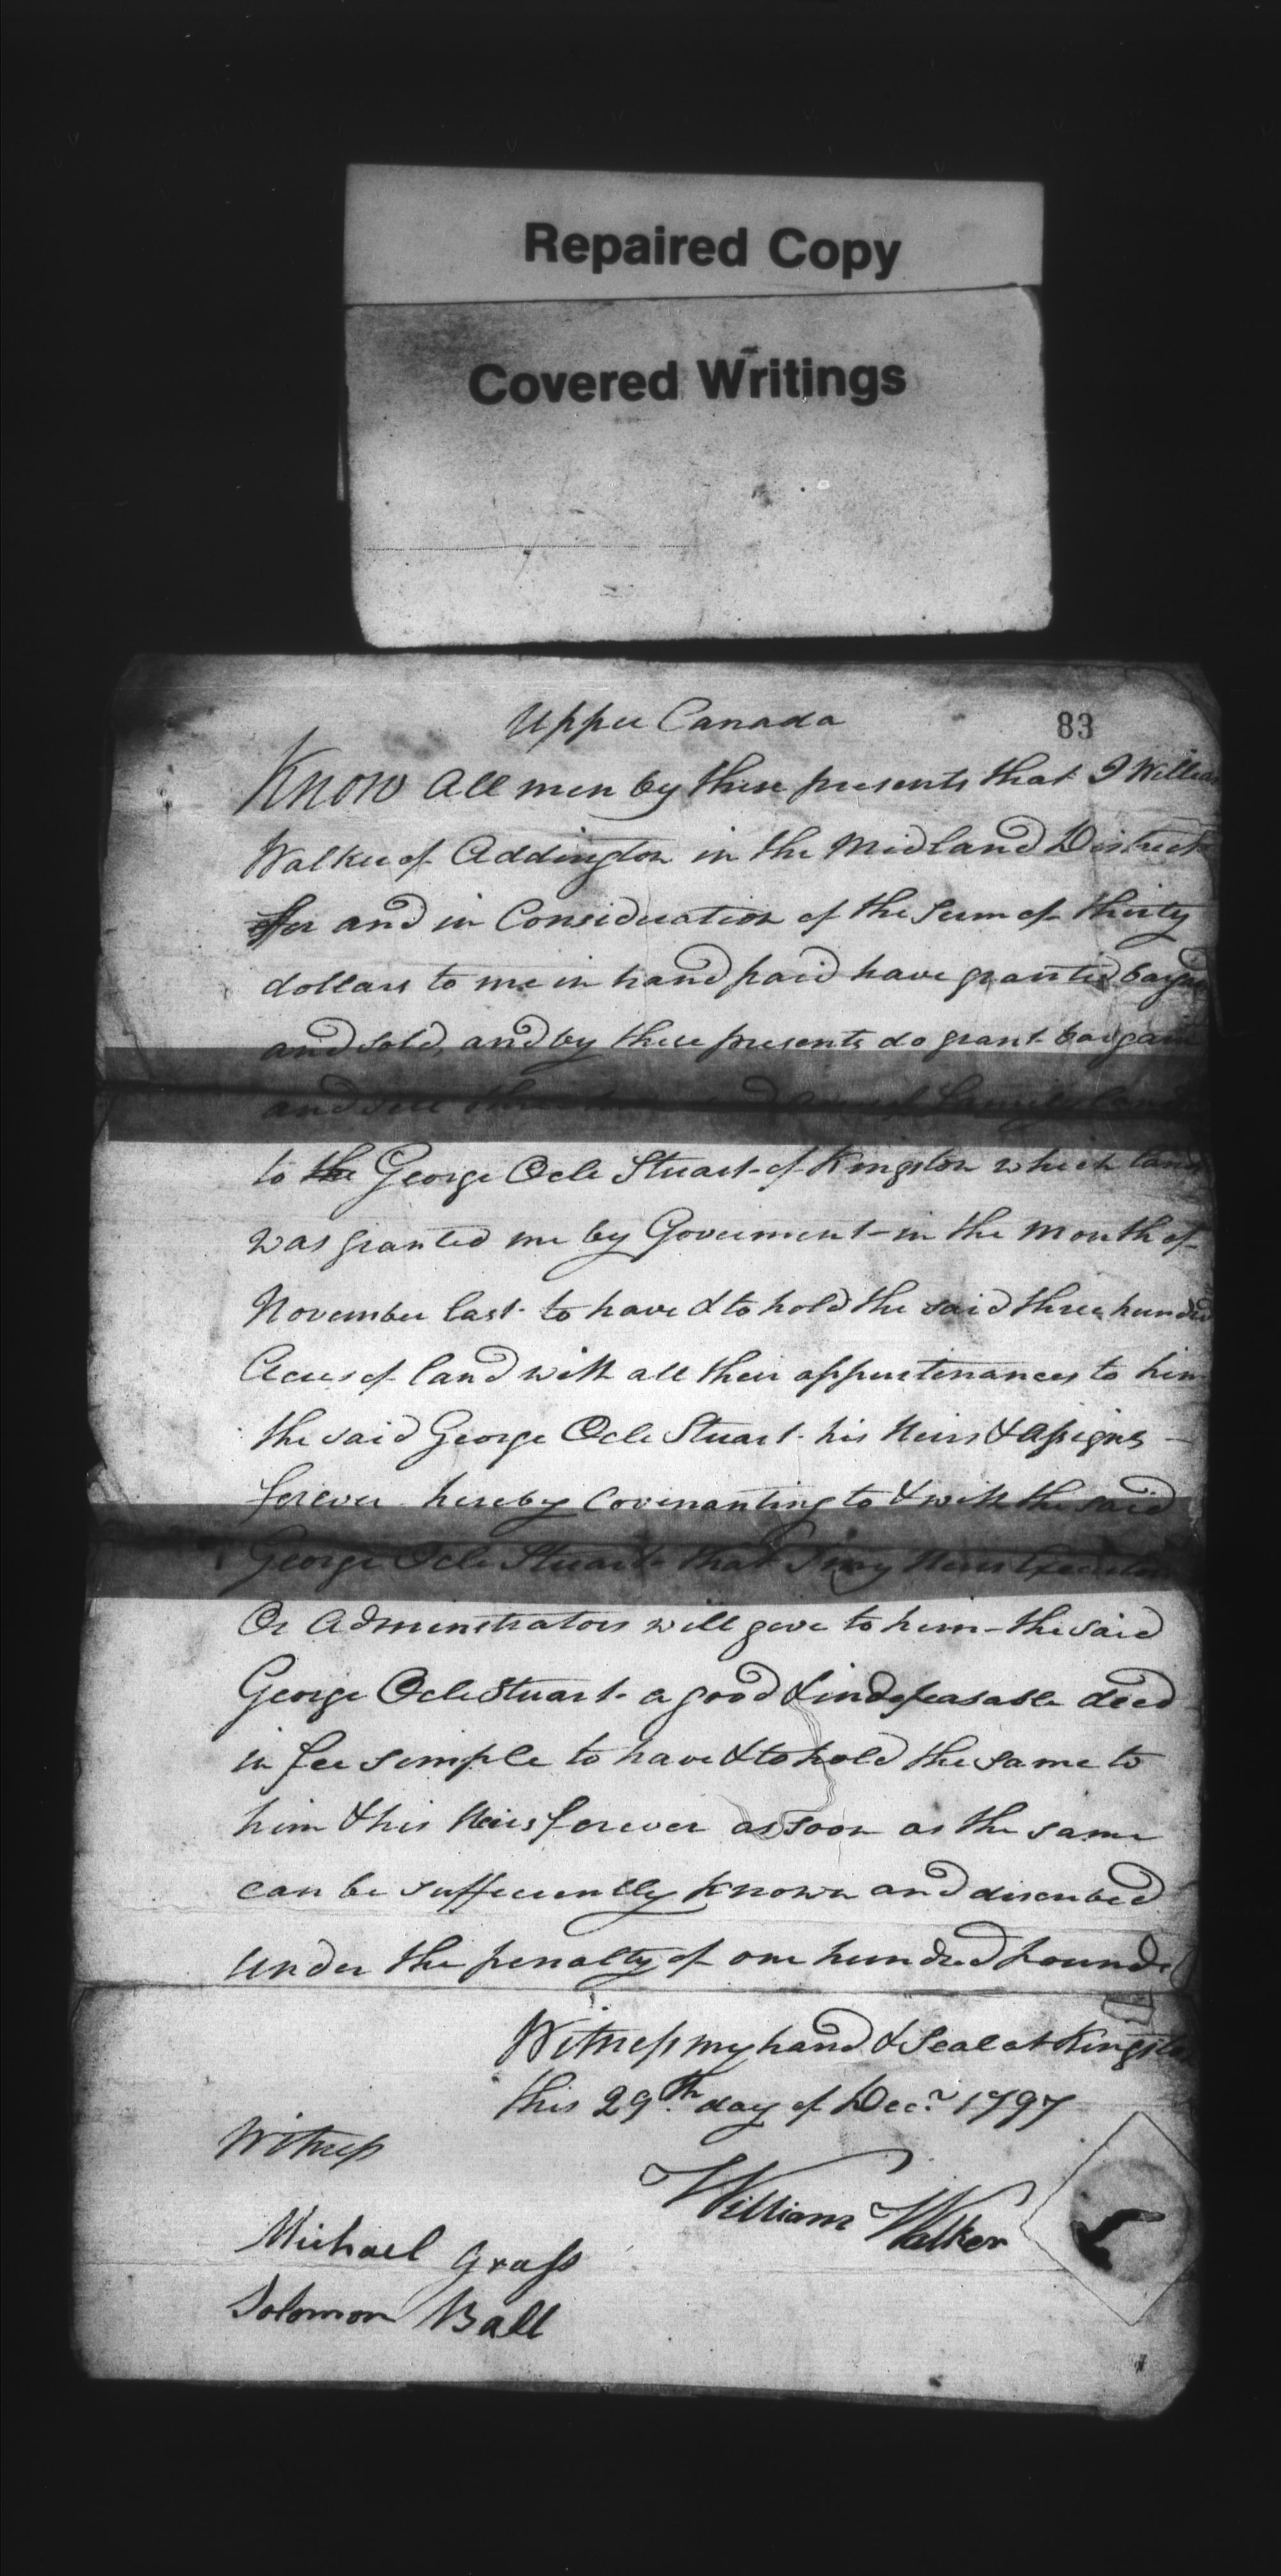 Repaired Copy
Covered Writings
Upper Canada
83
Know all men by these presents that I William
Walker of Addington in the Midland District
for and in Consideration of the sum of thirty
dollars to me in hand paid have granted bargain
and sold, and by these presents do grant bargain
and sell three hundred acres of family land
to the George Ocle Stuart of Kingston which land
was granted me by Goverment in the month of
November last to have & to hold the said three hundred
Acres of land with all their appurtenances to him
the said George Ocle Stuart his Heirs & assigns —
forever hereby Covenanting to & with the said
George Ocle Stuart that I my Heirs Executors
Or Adminstrators will give to him the said
George Ocle Stuart a good & indefeasable deed
in fee simple to have & to hold the same to
him & his Heirs forever as soon as the same
can be sufficiently known and discribed
under the penalty of one hundred pounds
Witness my hand & Seal at Kingston
this 29th day of Decr 1797
Witness
William Walker
Michael Grass
Solomon Ball